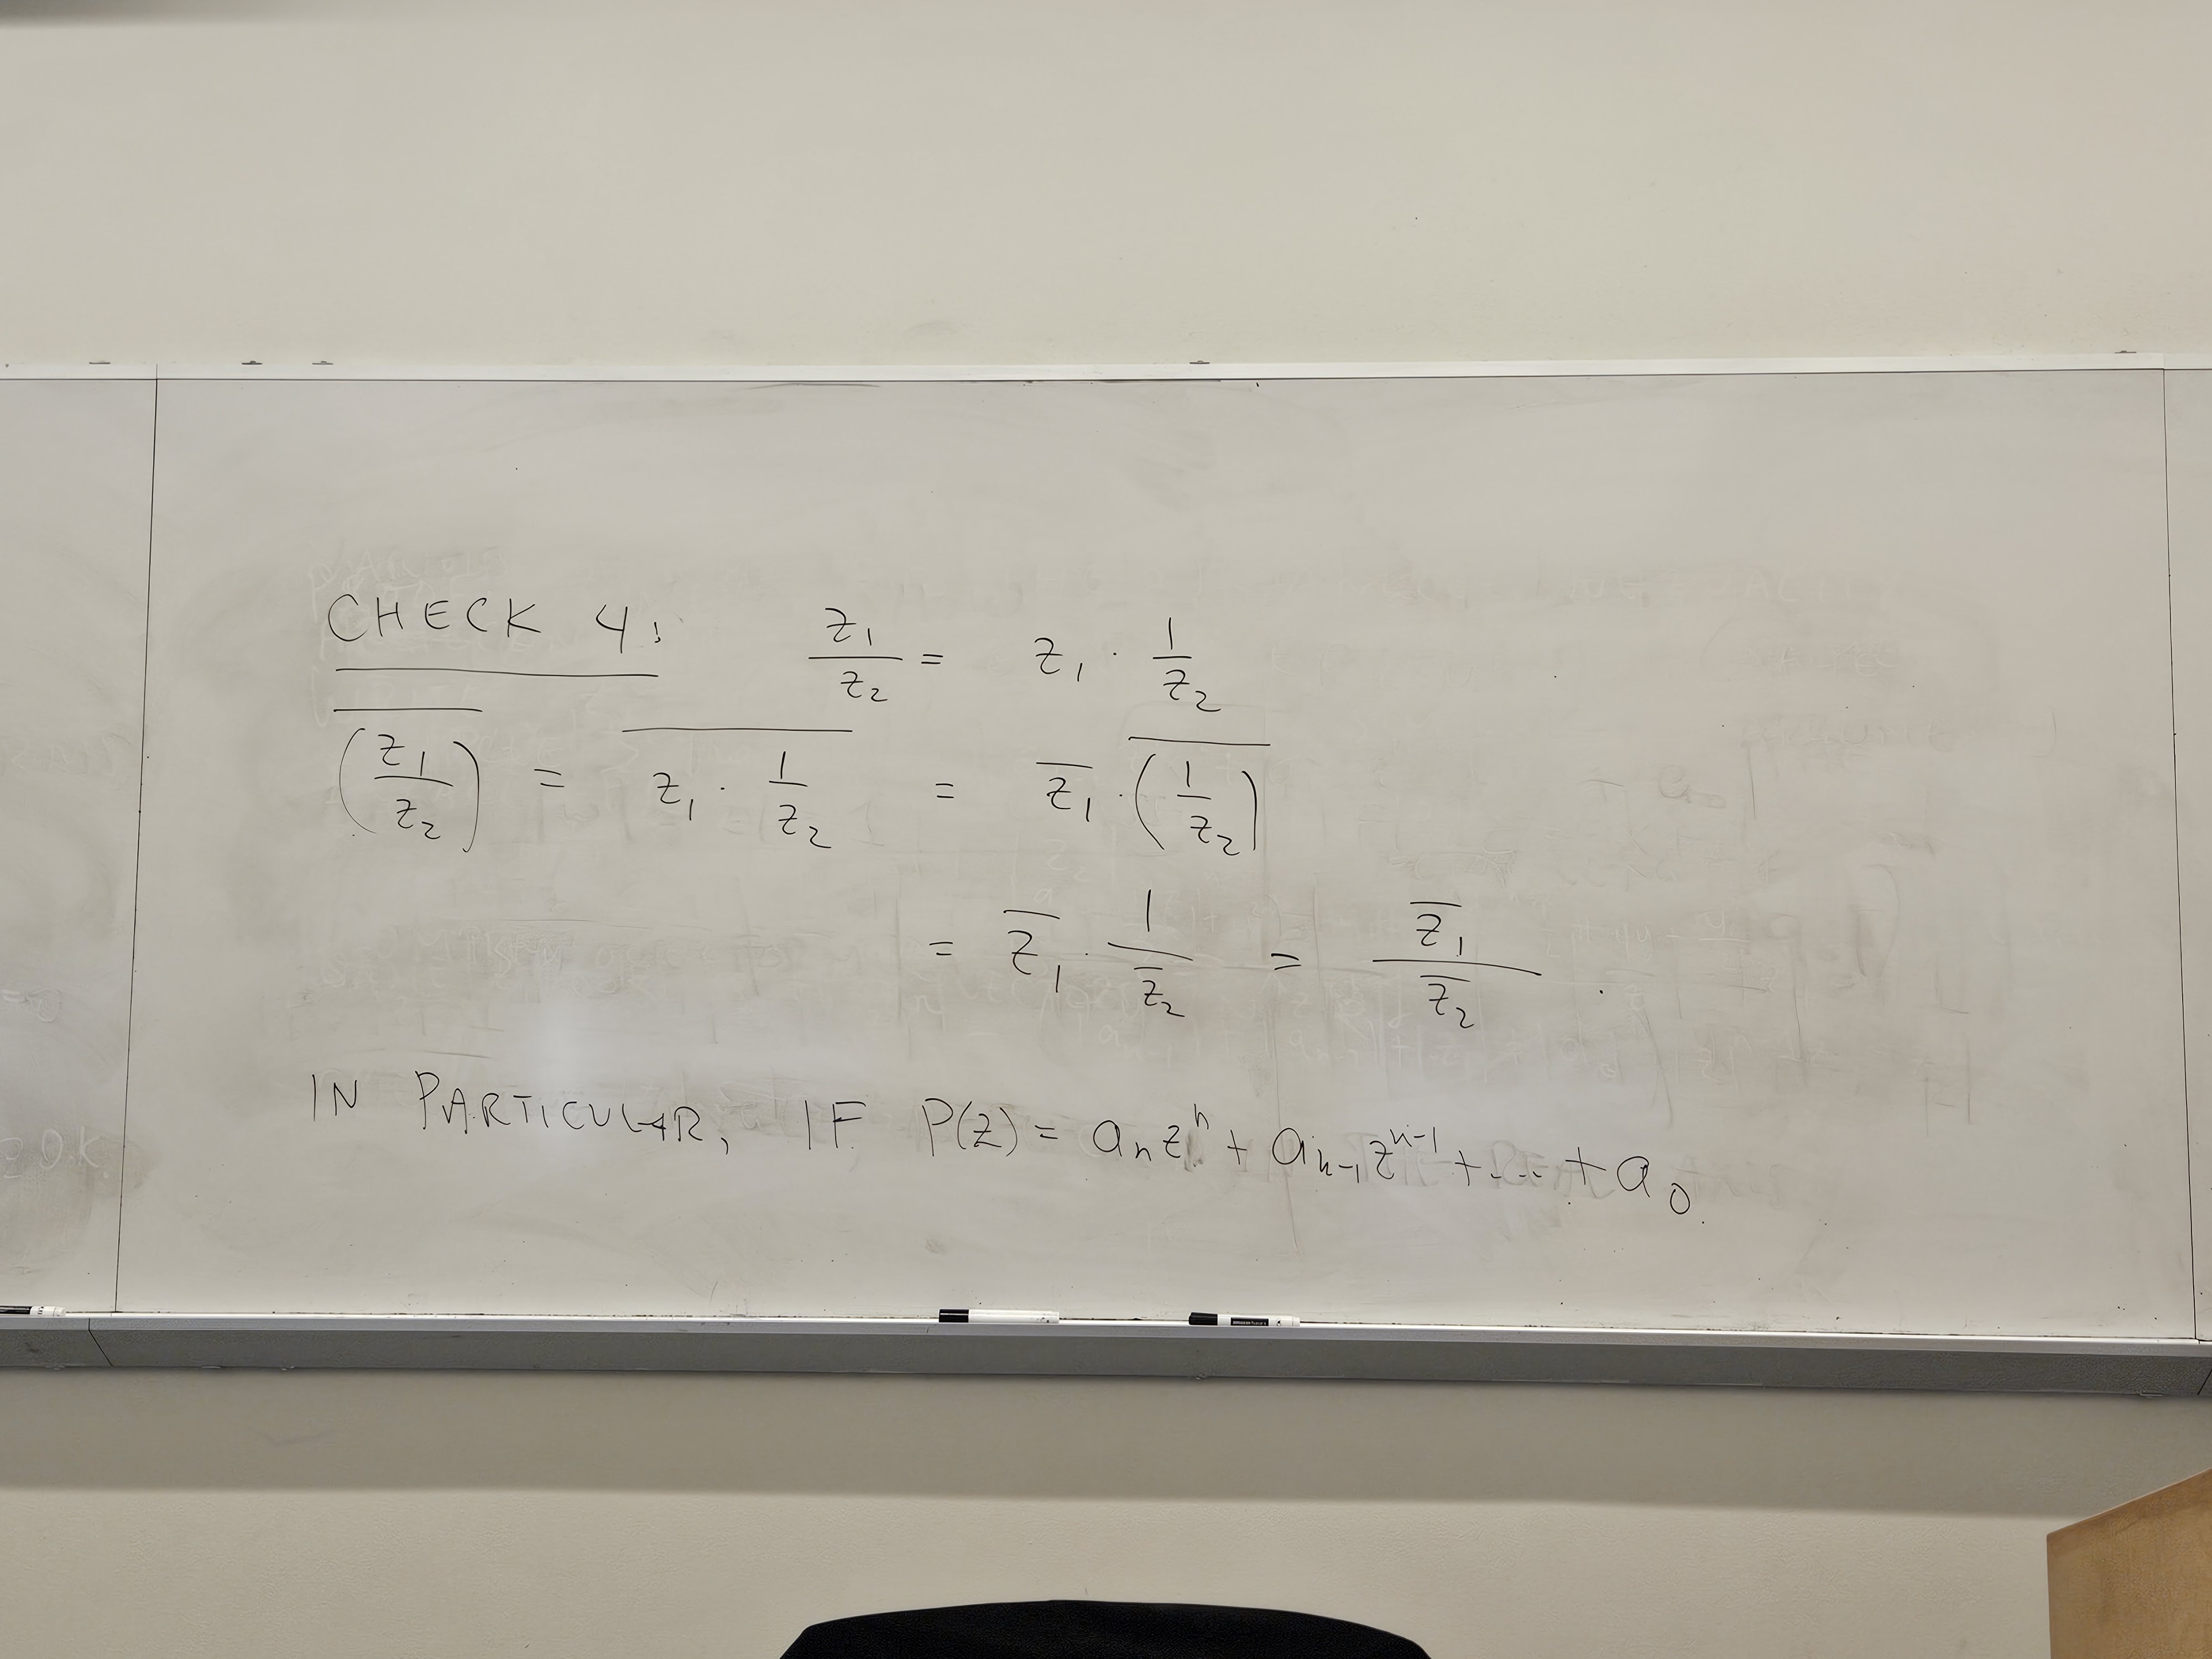 CHECK 4: z₁/z₂ = z₁ · 1/z₂
\overline{(z₁/z₂)} = \overline{z₁ · 1/z₂} = \overline{z₁} · \overline{(1/z₂)}
= \overline{z₁} · 1/\overline{z₂} = \overline{z₁}/\overline{z₂} .
IN PARTICULAR, IF P(z) = aₙzⁿ + aₙ₋₁zⁿ⁻¹ + ... + a₀